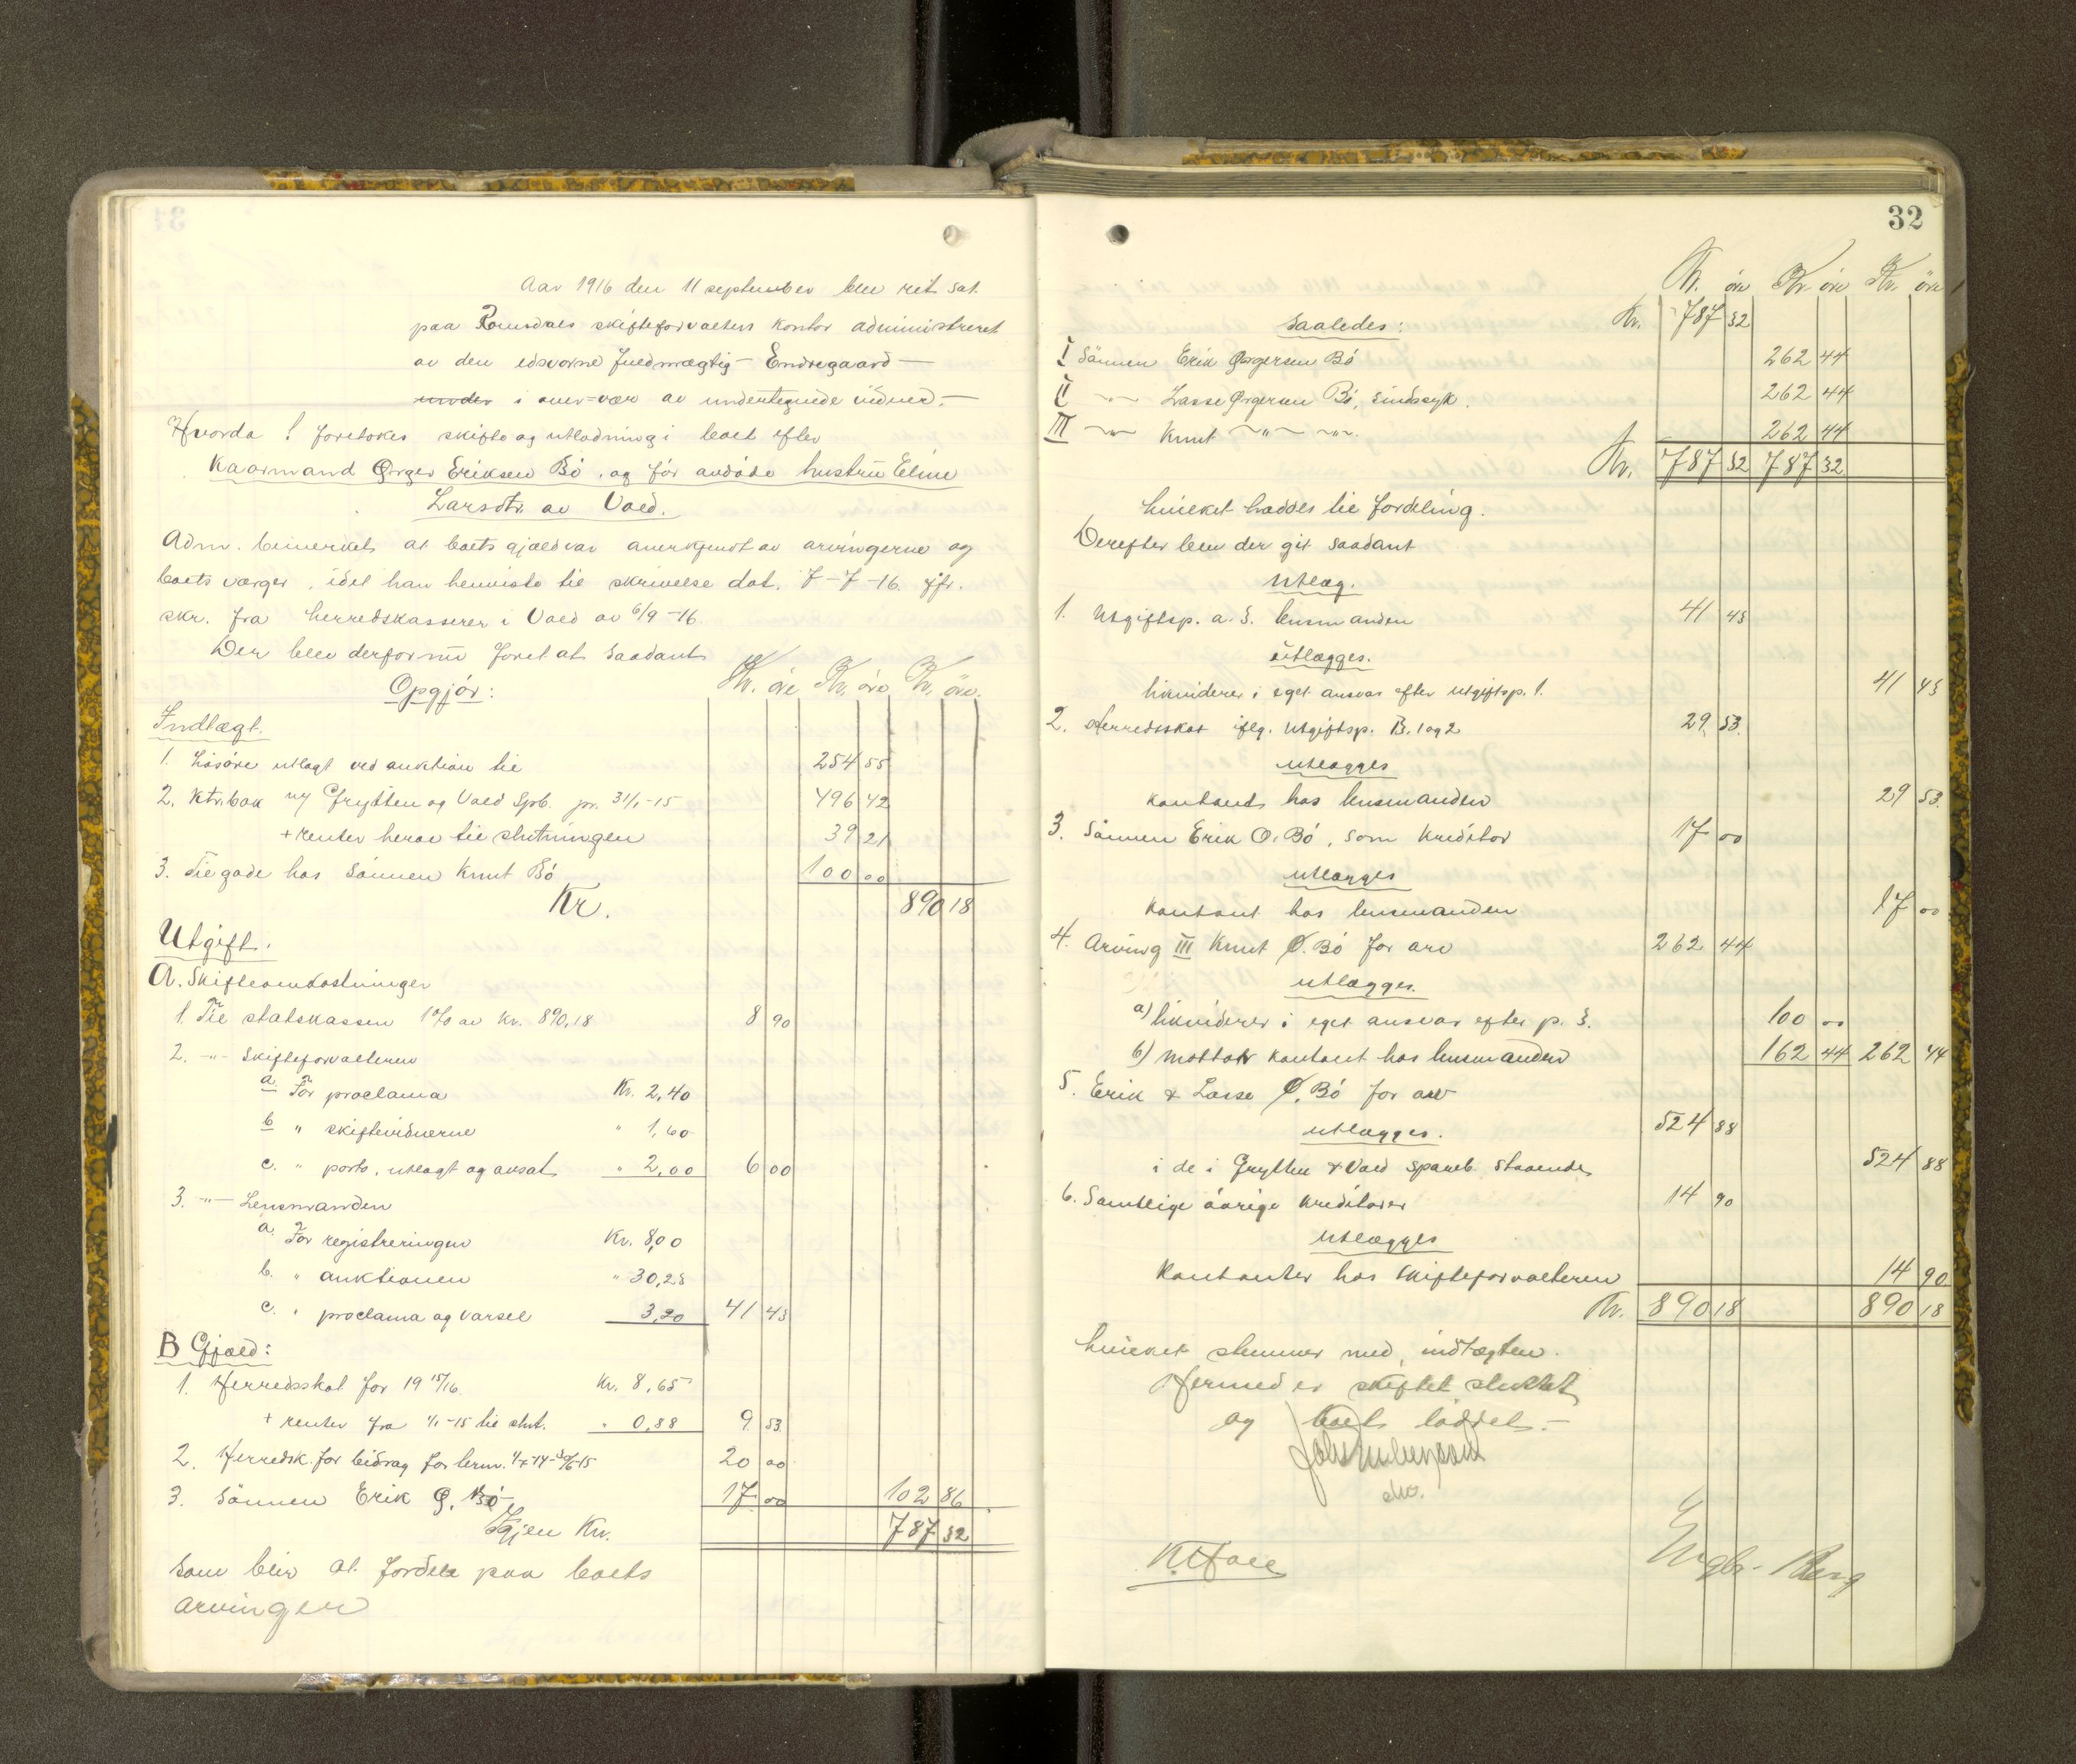 Aar 1916 den 11 september blev ret sat
paa Romsdals skifteforvalters kontor administreret
av den edsvorne fuldmægtig Endregaard —
under i over-vær av undertegnede vidner. —
Hvorda! foretokes skifte og utlodning i boet efter
Kaarmand Ørger Eriksen Bö, og för avdöde hustru Eline
Larsdtr. av Vold.
Adm. bemerket at boets gjæld var anerkjendt av arvingerne og
boets værger, idet han henviste til skrivelse dat. 7-7-16. jfr.
skr. fra herredskasserer i Vold av 6/9-16.
Der blev derfor nu foretat saadant
Opgjör: Kr. öre Kr. öre Kr. öre.
Indtægt.
1. Lösöre utlagt ved auktion til 254 55
2. Ktr.bok m/ Grytten og Vold Spb. pr. 31/1-15 496 42
+ renter herav til slutningen 39 21
3. Tilgode hos sönnen Knut Bö 100 00
Kr. 890 18
Utgift.
A. Skifteomkostninger
1. Til statskassen 1% av kr. 890,18 8 90
2. -"- Skifteforvalteren
a. For proclama Kr. 2,40
b " skiftevidnerne " 1,60
c. " porto, utlagt og ansat " 2,00 6 00
3. -"- Lensmanden
a. For registreringen Kr. 8,00
b. " auktionen " 30,25
c. " proclama og varsel 3,20 41 45
B Gjæld:
1. Herredsskat for 19 15/16 Kr. 8,65
+ renter fra 1/1-15 til slut. " 0,88 9 53
2. Herredsk. for bidrag for term. 1/7-14-30/6-15 20 00
3. Sönnen Erik Ø. Bö 17 00 102 86
Igjen Kr. 787 32
som blir at fordele paa boets
arvinger
32
Kr. öre Kr. öre Kr. öre
saaledes: Kr. 787 32
I Sönnen Erik Ørgersen Bö 262 44
II -"- Lasse Ørgersen Bö, sindssyk. 262 44
III -"- Knut -"- -"-. 262 44
Kr. 787 32 787 32
hvilket haddes til fordeling.
Derefter blev der git saadant
Utlæg.
1. Utgiftsp. a. 3. lensmanden 41 45
utlægges.
likviderer i eget ansvar efter utgiftsp. 1. 41 45
2. Herredsskat iflg. utgiftsp. B. 1 og 2 29 53
utlægges
kontant hos lensmanden 29 53
3. Sönnen Erik O. Bö, som kreditor 17 00
utlægges
kontant hos lensmanden 17 00
4. Arving III Knut Ø. Bö for arv 262 44
utlægges.
a) likviderer i eget ansvar efter p. 3. 100 00
b) mottar kontant hos lensmanden 162 44 262 44
5. Erik & Lasse Ø. Bö for arv
utlægges. 524 88
i de i Grytten & Vold spareb. staaende 524 88
6. Samtlige övrige kreditorer 14 90
utlægges
kontanter hos skifteforvalteren 14 90
Kr. 890 18 890 18
hvilket stemmer med indtægten.
Hermed er skiftet sluttet
og boets loddet. —
Engbr. Berg